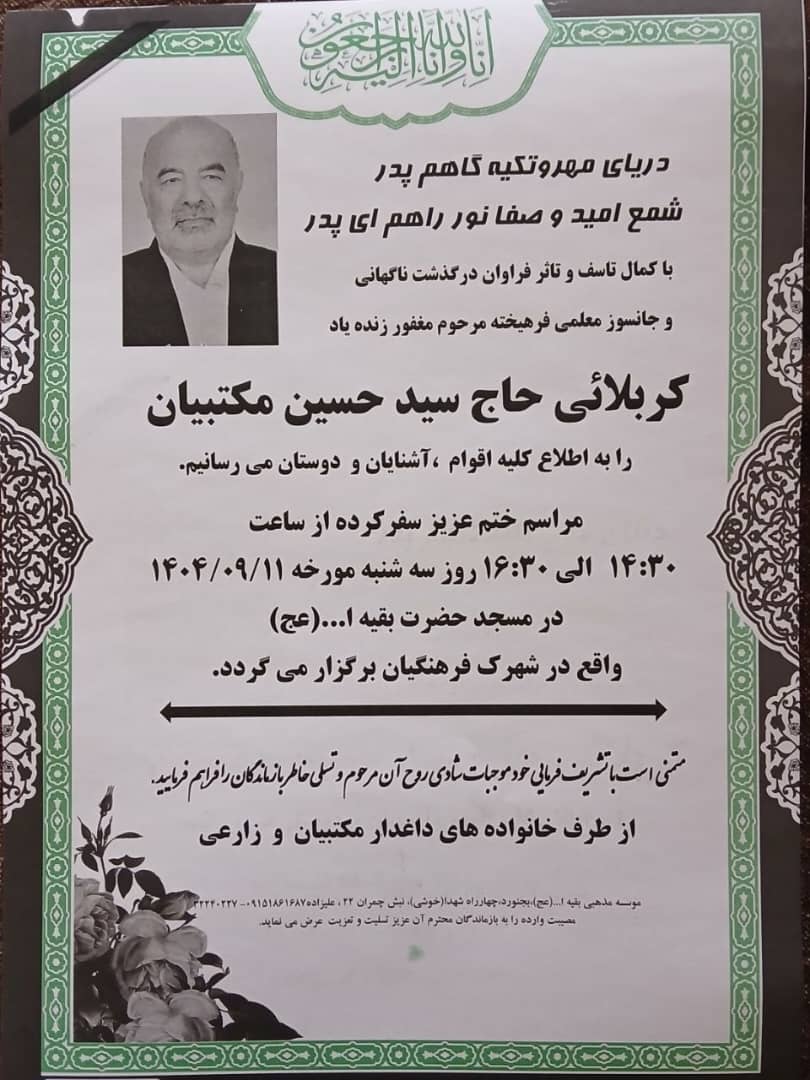 انا لله و انا الیه راجعون
دریای مهروتکیه گاهم پدر
شمع امید و صفا نور راهم ای پدر
با کمال تاسف و تاثر فراوان درگذشت ناگهانی
و جانسوز معلمی فرهیخته مرحوم مغفور زنده یاد
کربلائی حاج سید حسین مکتبیان
را به اطلاع کلیه اقوام ،آشنایان و دوستان می رسانیم.
مراسم ختم عزیز سفرکرده از ساعت
۱۴:۳۰ الی ۱۶:۳۰ روز سه شنبه مورخه ۱۴۰۴/۰۹/۱۱
در مسجد حضرت بقیه ا...(عج)
واقع در شهرک فرهنگیان برگزار می گردد.
متمنی است با تشریف فرمایی خود موجبات شادی روح آن مرحوم و تسلی خاطر بازماندگان را فراهم فرمایید.
از طرف خانواده های داغدار مکتبیان و زارعی
موسسه مذهبی بقیه ا...(عج)،بجنورد،چهارراه شهدا(خوشی)، نبش چمران ۲۲ ، علیزاده۰۹۱۵۱۸۶۱۶۸۷-۳۲۲۴۰۲۲۷
مصیبت وارده را به بازماندگان محترم آن عزیز تسلیت و تعزیت عرض می نماید.